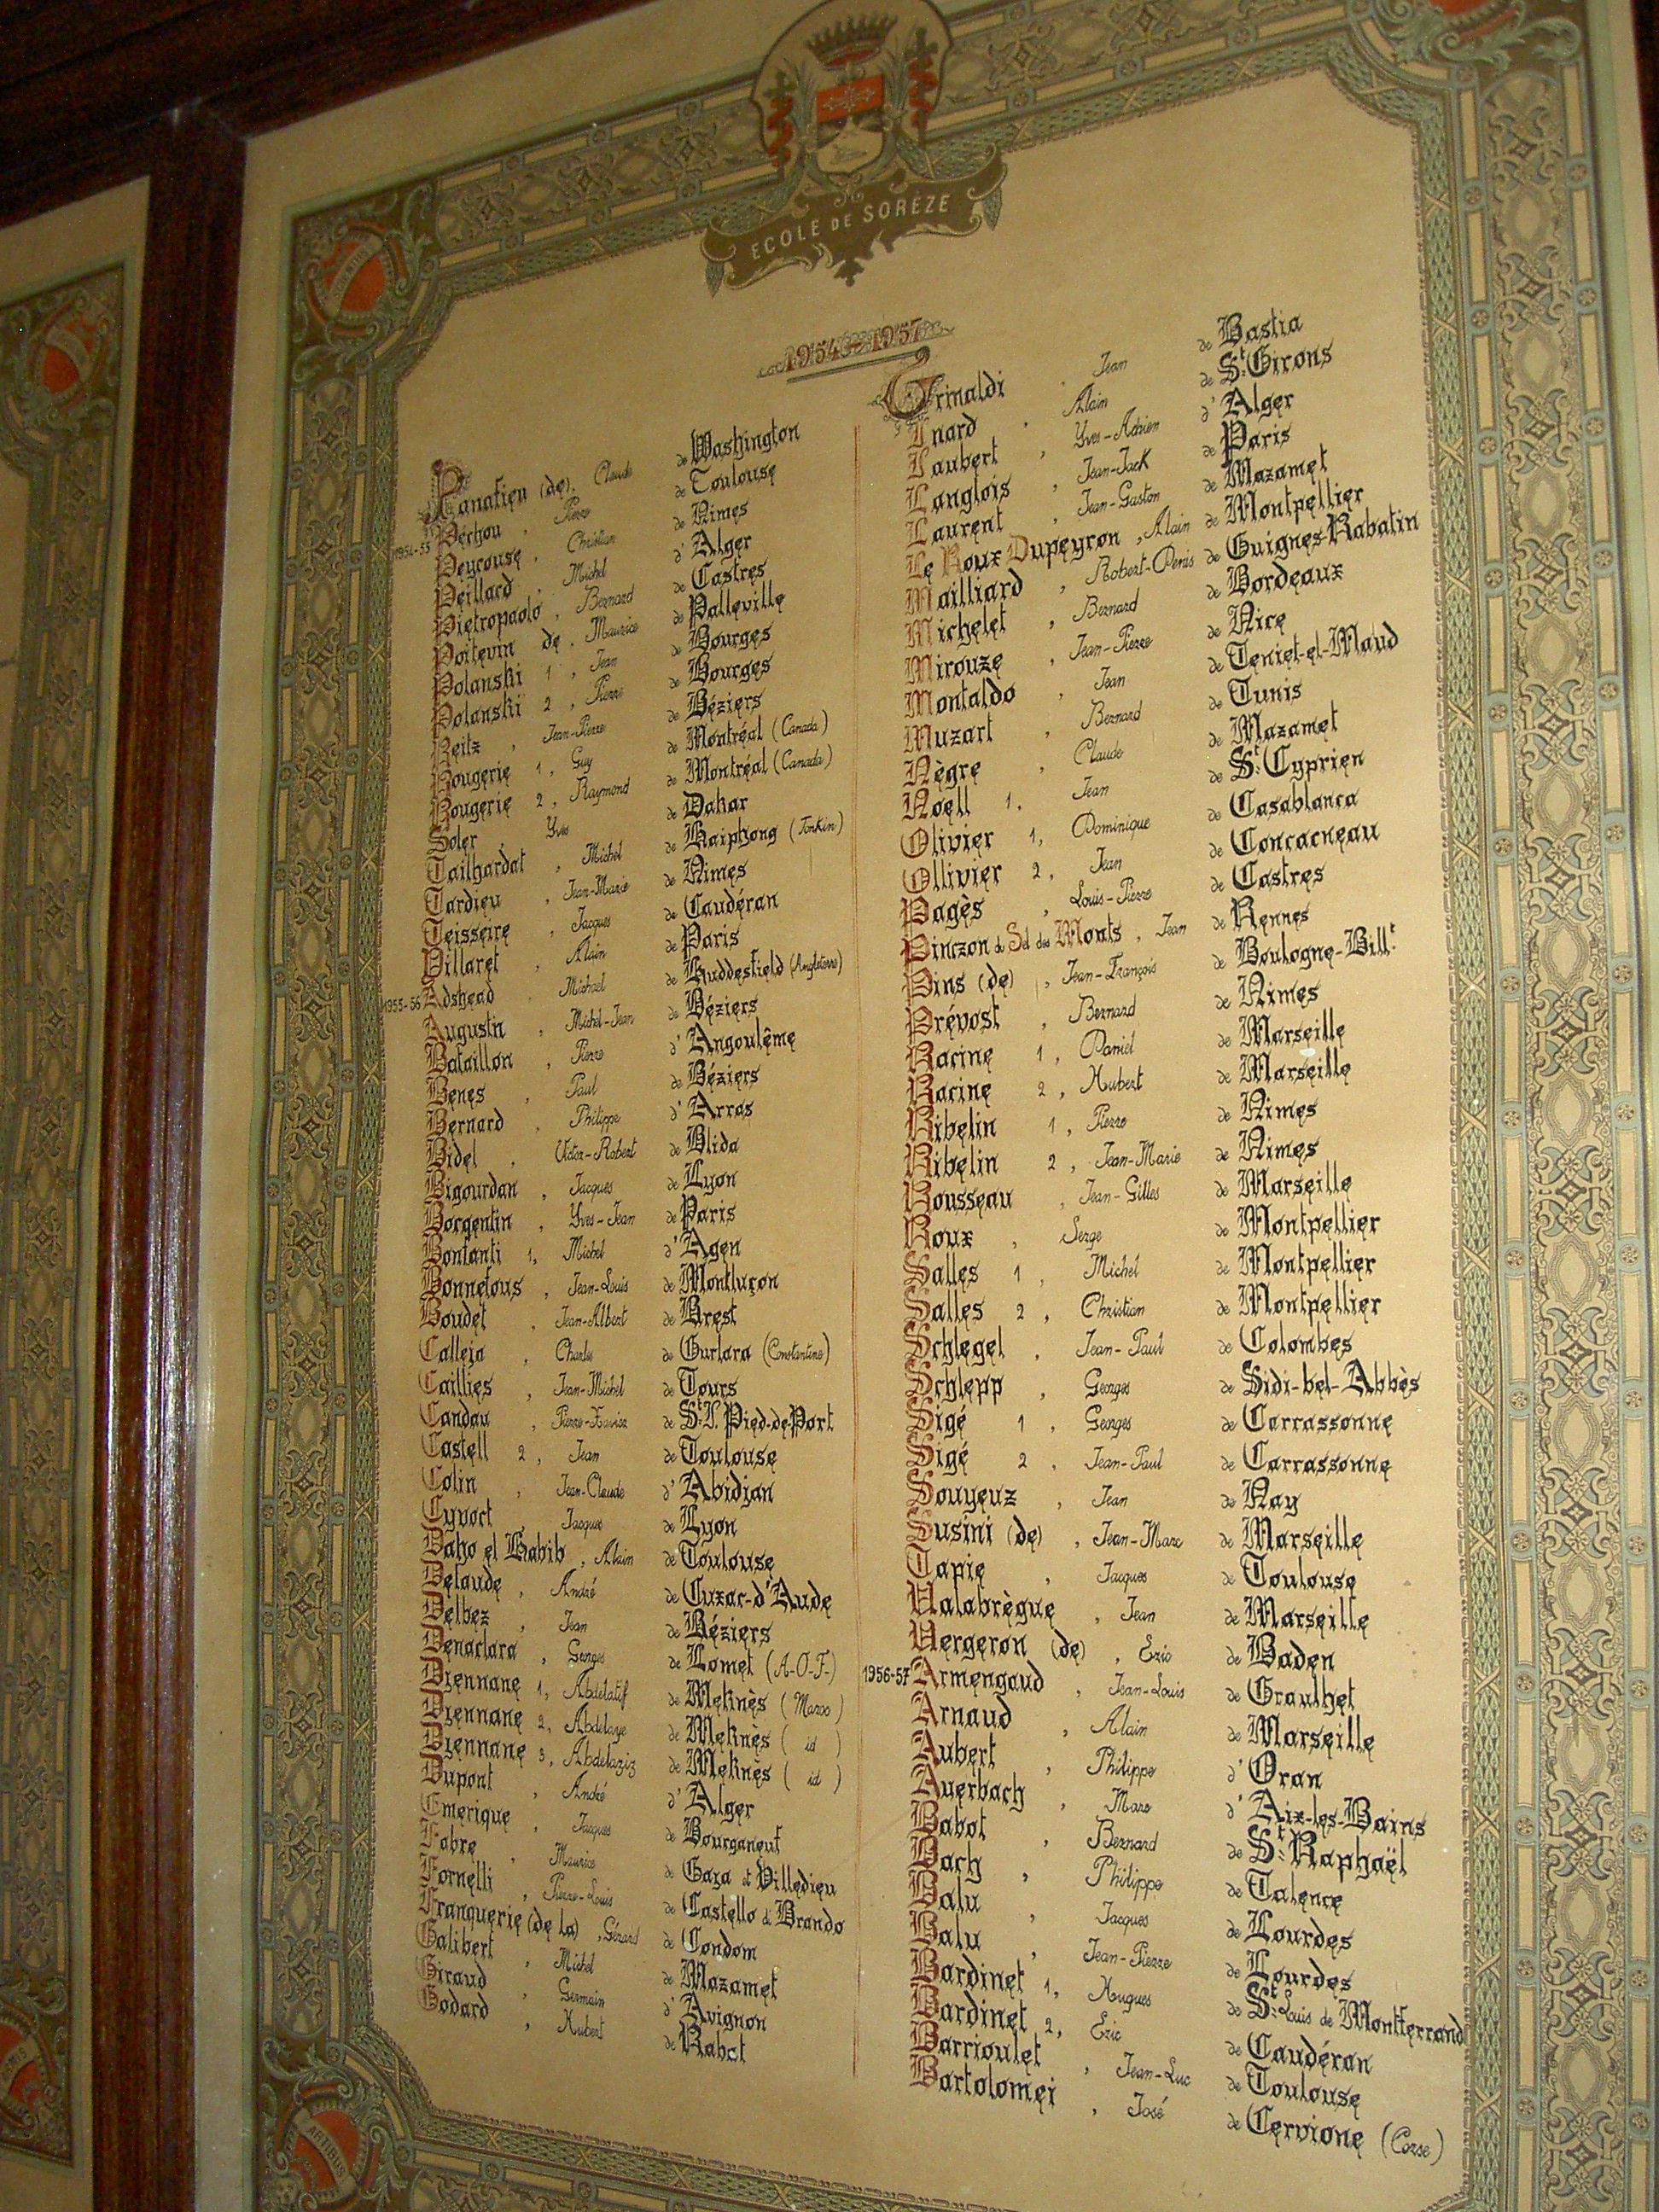 ECOLE DE SORÈZE
1954-1957
Panafieu (de). Claude de Washington
Péchou . Pierre de Toulouse
1954-55 Peyrouse . Christian de Nimes
Peillard . Michel d' Alger
Pietropaolo , Bernard de Castres
Poitevin de . Maurice de Palleville
Polanski 1 , Jean de Bourges
Polanski 2 , Pierre de Bourges
Reitz , Jean-Pierre de Béziers
Rougerie 1 , Guy de Montréal (Canada)
Rougerie 2 , Raymond de Montréal (Canada)
Soler Yves de Dakar
Tailhardat , Michel de Haiphong (Tonkin)
Tardieu , Jean-Marie de Nimes
Teisseire , Jacques de Caudéran
Villaret , Alain de Paris
1955-56 Adshead . Michael de Huddesfield (Angleterre)
Augustin , Michel-Jean de Béziers
Bataillon , Pierre d' Angoulême
Benes , Paul de Béziers
Bernard , Philippe d' Arras
Bidel , Victor-Robert de Blida
Bigourdan , Jacques de Lyon
Borgentin , Yves-Jean de Paris
Bonfanti 1, Michel d' Agen
Bonnefous , Jean-Louis de Montluçon
Boudet , Jean-Albert de Brest
Calleja , Charles de Gurlara (Constantine)
Caillies , Jean-Michel de Tours
Candau , Pierre-Xavier de St J. Pied-de-Port
Castell 2 , Jean de Toulouse
Colin , Jean-Claude d' Abidjan
Cyvoct , Jacques de Lyon
Daho el Habib , Alain de Toulouse
Delaude , André de Cuzac-d'Aude
Delbez , Jean de Béziers
Denaclara , Georges de Lomet (A-O-F-)
Djennane 1, Abdelatif de Meknès (Maroc)
Djennane 2, Abdelaye de Meknès ( id )
Djennane 3, Abdelaziz de Meknès ( id )
Dupont , André d' Alger
Emerique , Jacques de Bourganeuf
Fabre , Maurice de Gaza et Villedieu
Fornelli , Pierre-Louis de Castello di Brando
Franquerie (de la) , Gérard de Condom
Galibert , Michel de Mazamet
Giraud , Germain d' Avignon
Godard , Hubert de Rabat
Grinaldi . Jean de Bastia
Inard . Alain de St Girons
Jaubert , Yves-Adrien d' Alger
Langlois , Jean-Jack de Paris
Laurent , Jean-Gaston de Mazamet
Le Roux Dupeyron , Alain de Montpellier
Mailliard , Robert-Denis de Guignes-Rabatin
Michelet , Bernard de Bordeaux
Mirouze , Jean-Pierre de Nice
Montaldo , Jean de Teniet-el-Maud
Muzart , Bernard de Tunis
Nègre , Claude de Mazamet
Noell 1. Jean de St Cyprien
Olivier 1, Dominique de Casablanca
Ollivier 2, Jean de Concacneau
Pagès , Louis-Pierre de Castres
Pinczon du Sel des Monts , Jean de Rennes
Pins (de) , Jean-François de Boulogne-Bill.t
Prévost , Bernard de Nimes
Racine 1 , Daniel de Marseille
Racine 2 , Hubert de Marseille
Ribelin 1 , Pierre de Nimes
Ribelin 2 , Jean-Marie de Nimes
Rousseau , Jean-Gilles de Marseille
Roux , Serge de Montpellier
Salles 1 , Michel de Montpellier
Salles 2 , Christian de Montpellier
Schlegel , Jean-Paul de Colombes
Schlepp , Georges de Sidi-bel-Abbès
Sigé 1 , Georges de Carrassonne
Sigé 2 , Jean-Paul de Carrassonne
Souyeuz , Jean de Nay
Susini (de) , Jean-Marc de Marseille
Tapie , Jacques de Toulouse
Valabrègue , Jean de Marseille
Vergeron (de) , Eric de Baden
1956-57 Armengaud , Jean-Louis de Graulhet
Arnaud , Alain de Marseille
Aubert , Philippe d' Oran
Auerbach , Marc d' Aix-les-Bains
Babot , Bernard de St Raphaël
Bach , Philippe de Talence
Balu , Jacques de Lourdes
Balu , Jean-Pierre de Lourdes
Bardinet 1, Hugues de St Louis de Montferrand
Bardinet 2, Eric de Caudéran
Barrioulet , Jean-Luc de Toulouse
Bartolomei , José de Cervione (Corse)
ARTIBUS